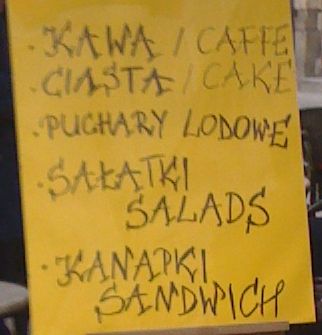 · KAWA / CAFFE
· CIASTA / CAKE
· PUCHARY LODOWE
· SAŁATKI
SALADS
· KANAPKI
SANDWICH